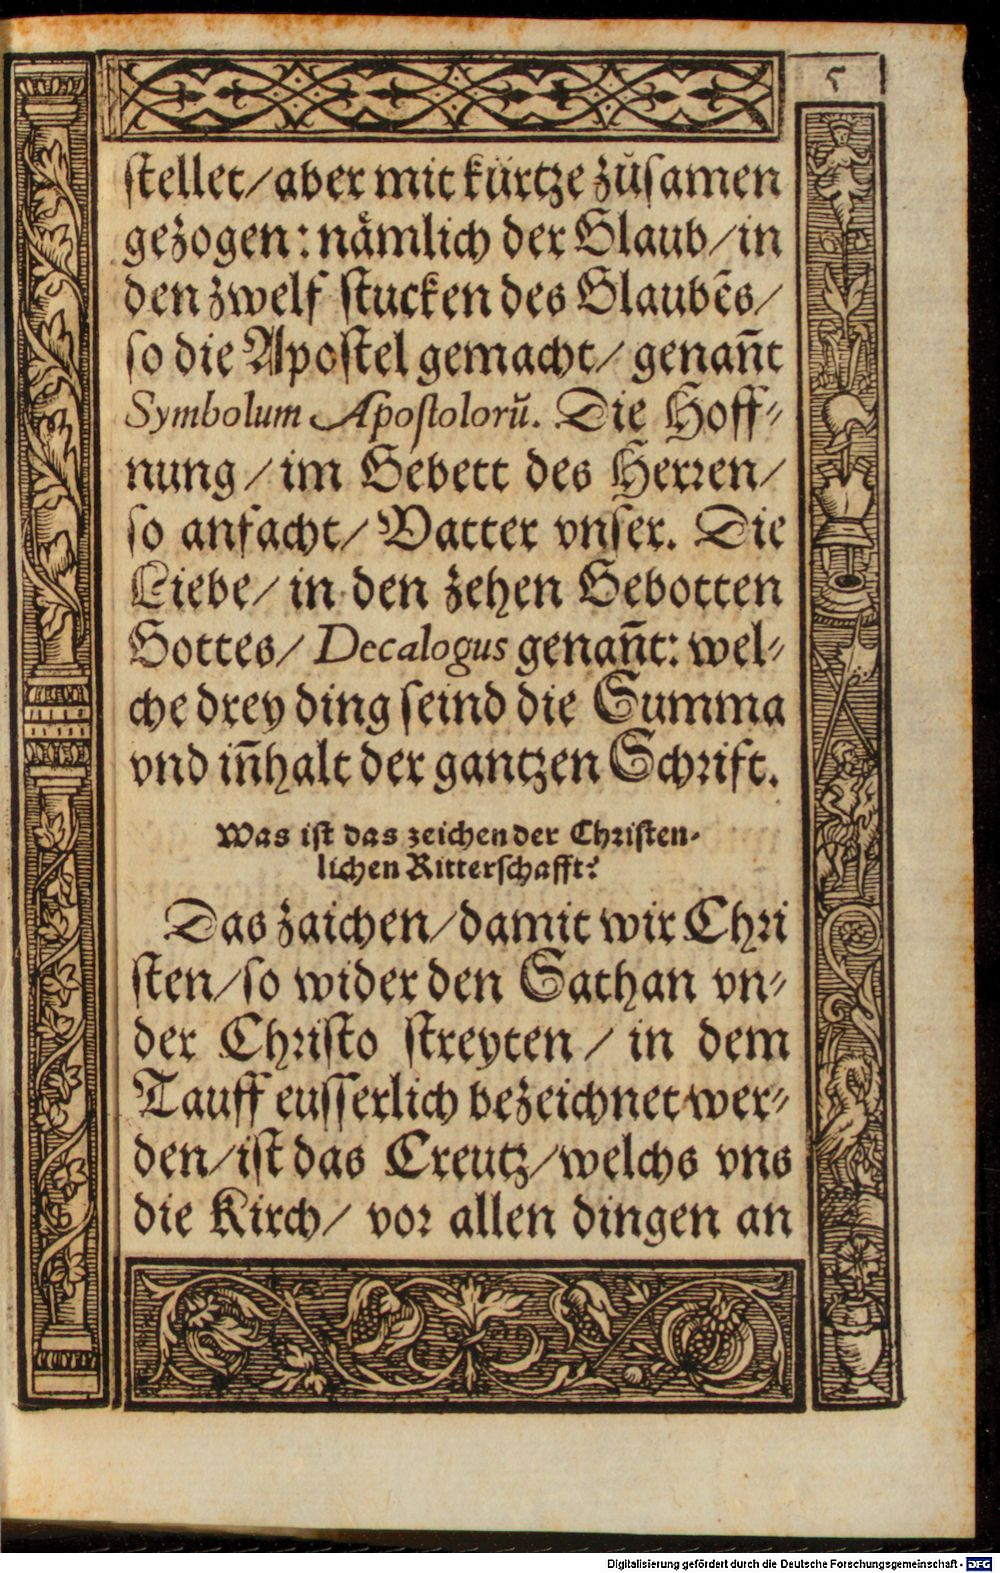 5
stellet/aber mit kürtze zůsamen
gezogen: nämlich der Glaub/in
den zwelf stucken des Glaubẽs/
so die Apostel gemacht/ genañt
Symbolum Apostolorũ. Die Hoff-
nung/im Gebett des Herren/
so anfacht/ Vatter vnser. Die
Liebe/ in den zehen Gebotten
Gottes/ Decalogus genañt: wel-
che drey ding seind die Summa
vnd iñhalt der gantzen Schrift.
Was ist das zeichen der Christen-
lichen Ritterschafft?
Das zaichen/damit wir Chri
sten/so wider den Sathan vn-
der Christo streyten/ in dem
Tauff eusserlich bezeichnet wer-
den/ist das Creutz/welchs vns
die Kirch/ vor allen dingen an
Digitalisierung gefördert durch die Deutsche Forschungsgemeinschaft - DFG